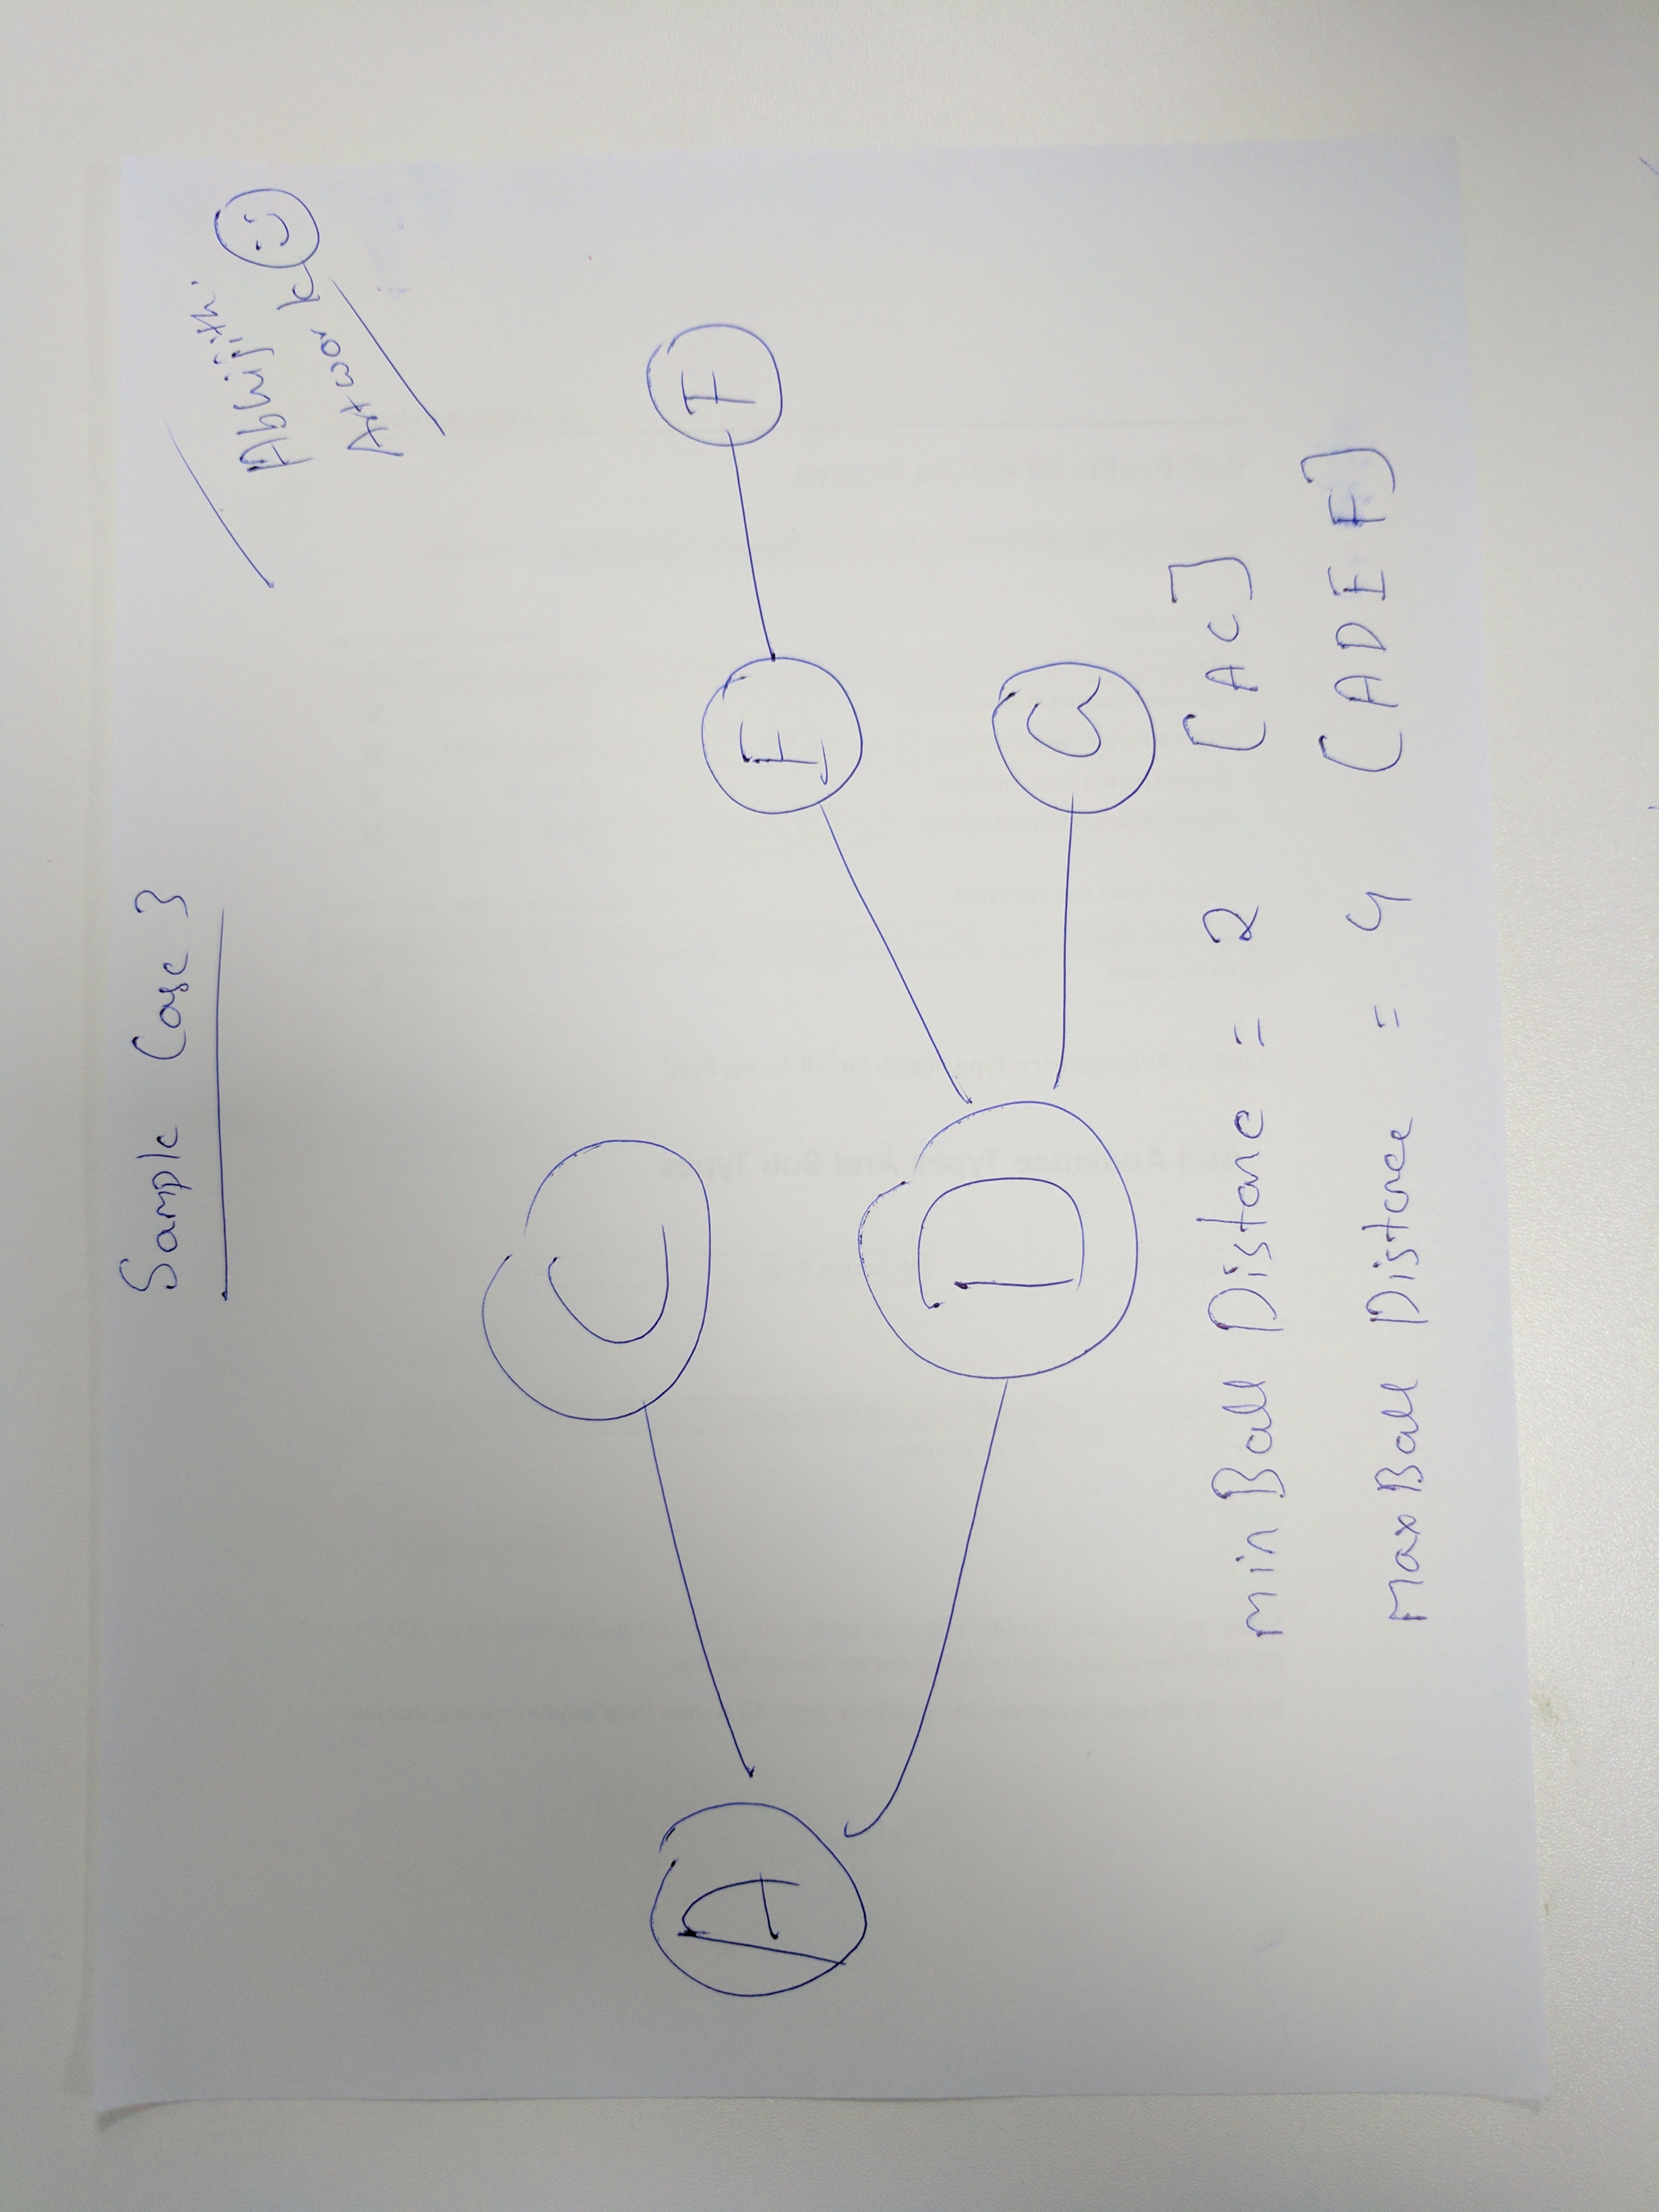 Sample Case 3
Abhijith.
Artwork
C
A
F
E
D
G
min Ball Distanc = 2 [AC]
Max Ball Distance = 4 [ADEF]